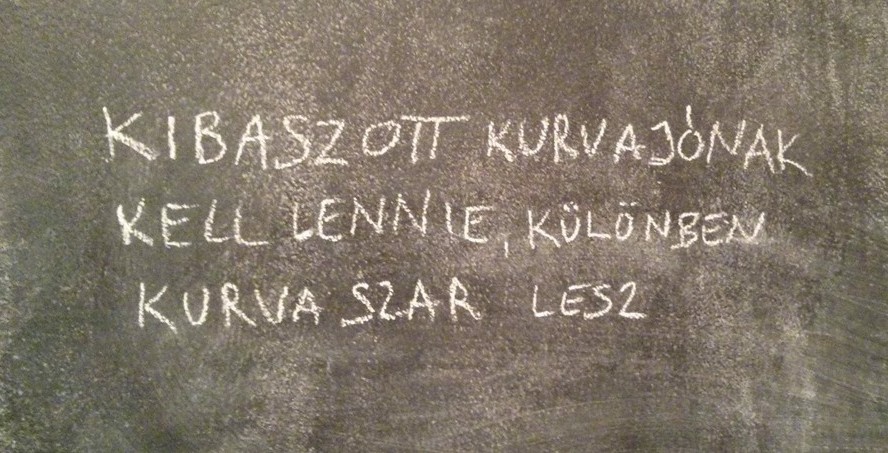 KIBASZOTT KURVAJÓNAK
KELL LENNIE, KÜLÖNBEN
KURVA SZAR LESZ